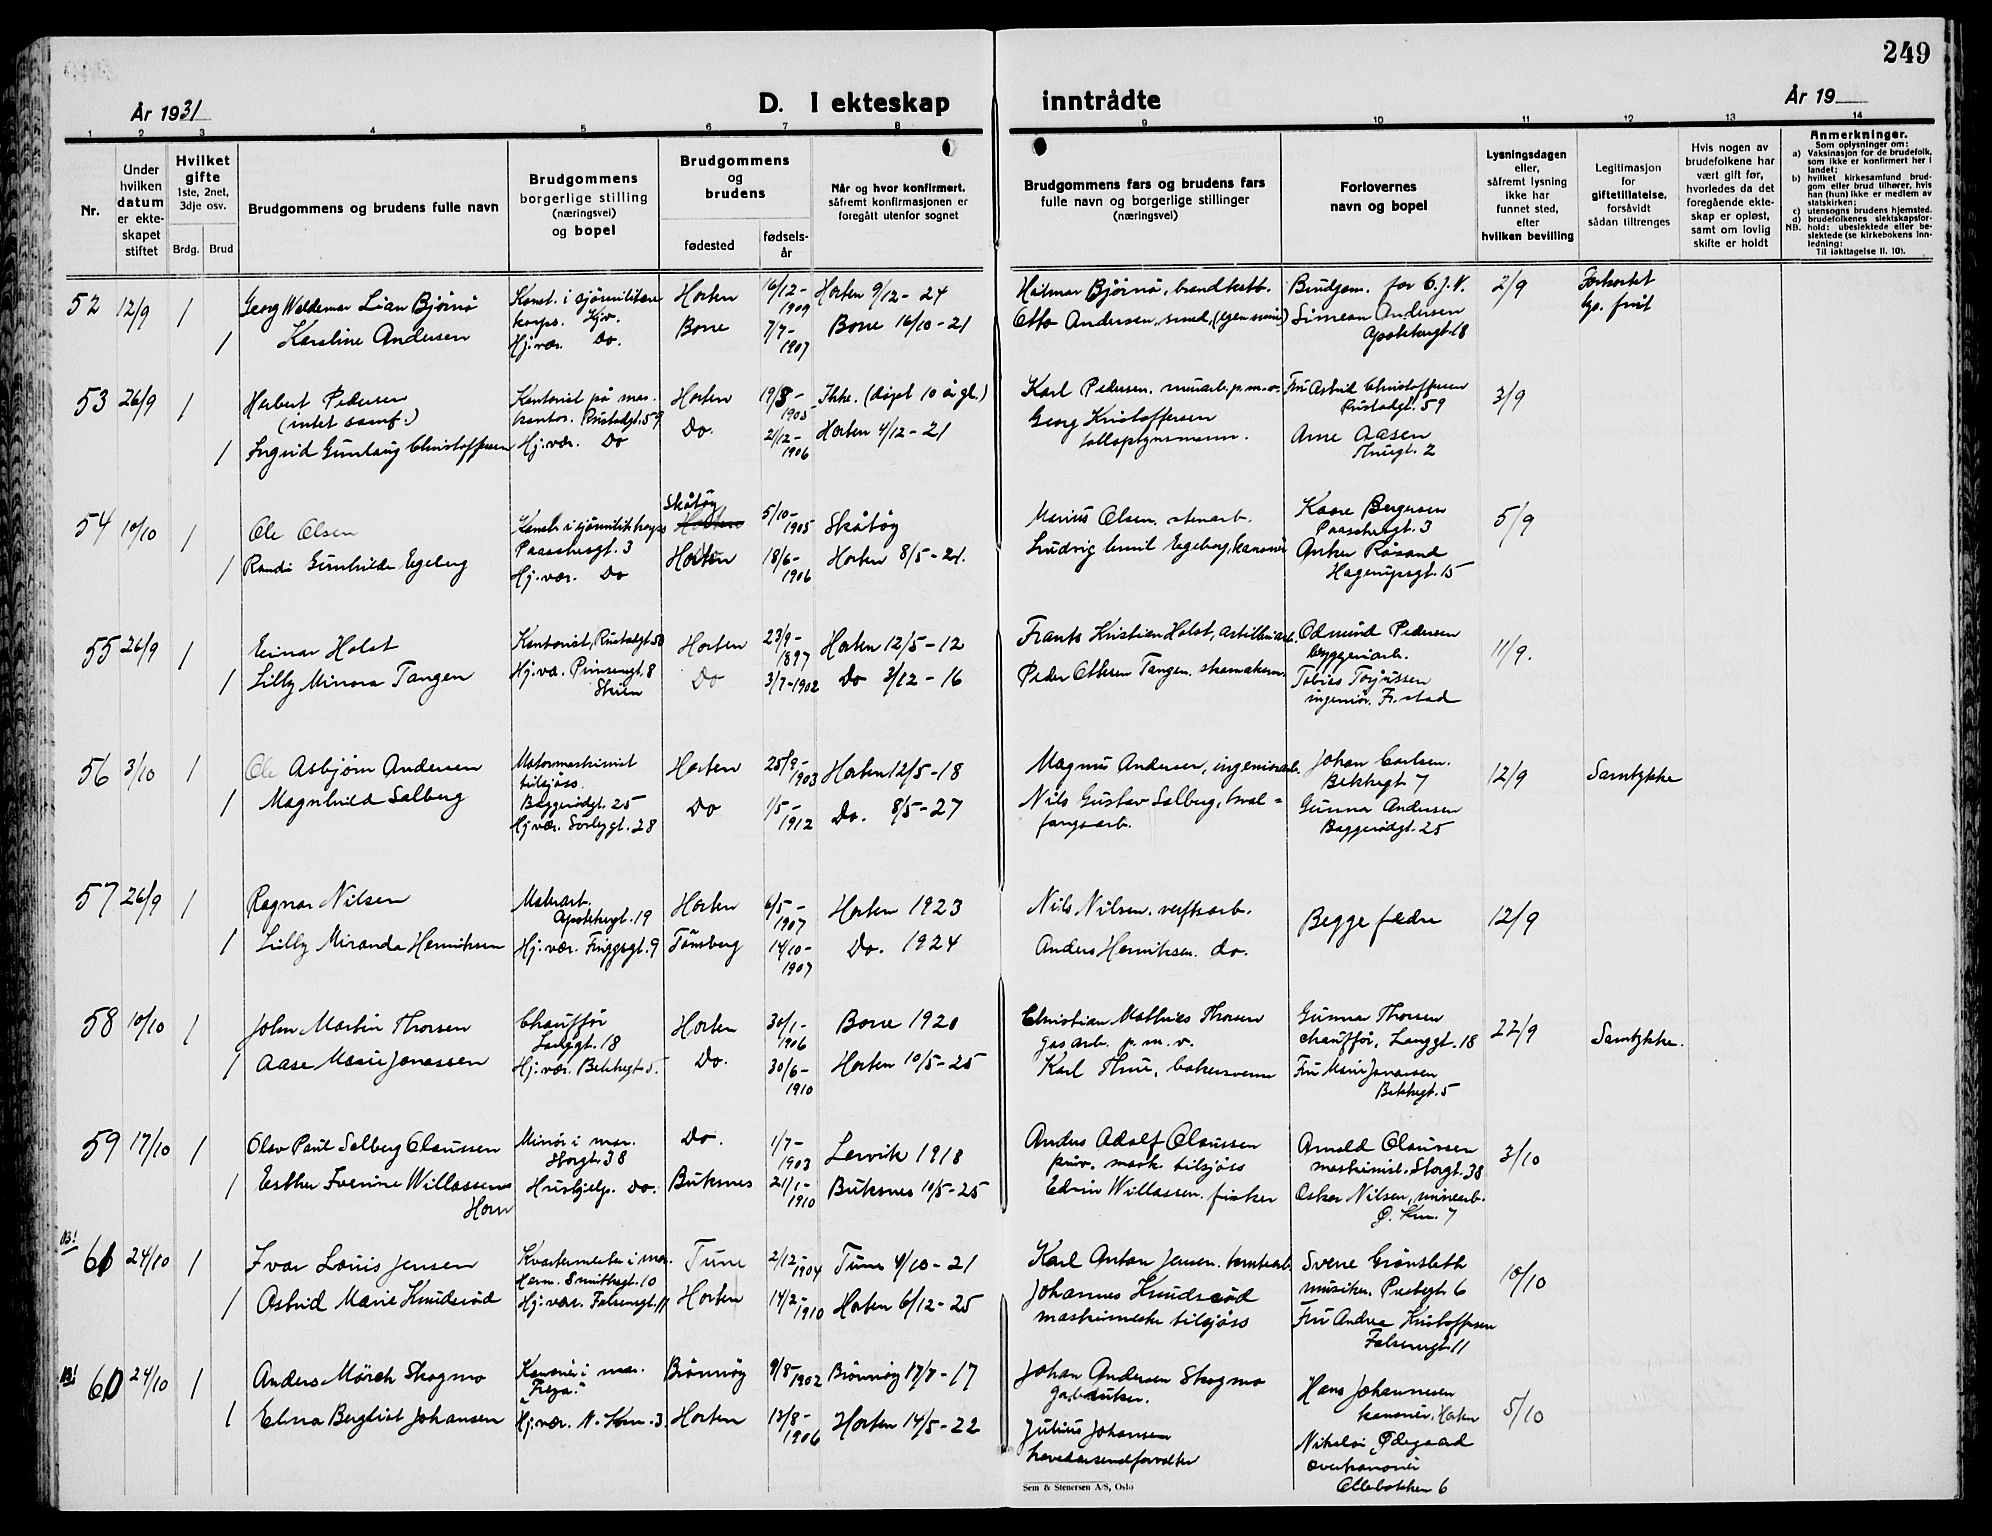 249
År 1931
D. I ekteskap inntrådte
År 19
1 2 3 4 5 6 7 8 9 10 11 12 13 14
Nr.
Under hvilken datum er ekteskapet stiftet
Hvilket gifte
1ste, 2net, 3dje osv.
Brdg. Brud
Brudgommens og brudens fulle navn
Brudgommens borgerlige stilling (næringsvei) og bopel
Brudgommens og brudens
fødested
fødselsår
Når og hvor konfirmert, såfremt konfirmasjonen er foregått utenfor sognet
Brudgommens fars og brudens fars fulle navn og borgerlige stillinger (næringsvei)
Forlovernes navn og bopel
Lysningsdagen eller, såfremt lysning ikke har funnet sted, efter hvilken bevilling
Legitimasjon for giftetillatelse, forsåvidt sådan tiltrenges
Hvis nogen av brudefolkene har vært gift før, hvorledes da det foregående ekteskap er opløst, samt om lovlig skifte er holdt
Anmerkninger.
Som oplysninger om:
a) Vaksinasjon for de brudefolk, som ikke er konfirmert her i landet;
b) hvilket kirkesamfund brudgom eller brud tilhører, hvis han (hun) ikke er medlem av statskirken;
c) utensogns brudens hjemsted.
d) brudefolkenes slektskapsforhold: ubeslektede eller beslektede (se kirkebokens innledning:
NB.
Til iakttagelse II. 10).
52 12/9 1 Georg Waldemar Lian Bjørnø Konst. i sjømilitære korps. Hjv. Horten 16/12-1909 Horten 9/12-24 Hjalmar Bjørnø, brandkstb. Brudgom. for 6.j.V. 2/9 Forkortet
1 Karoline Andersen Hj. vær. Do. Borre 7/7-1907 Borre 16/10-21 Otto Andersen, smed, Simeon Andersen Apotekergt. 18 frist
53 26/9 1 Herbert Pedersen (intet samf.) Kontorist på mar. kontor. Rustadgt. 59 Horten 19/8-1905 Ikke. (døpt 10 å gl.) Karl Pedersen, p.m.v. Fru Astrid Christoffersen Rustadgt. 59 3/9
1 Ingrid Gunlaug Christoffersen Hj. vær. Do Do. 2/12-1906 Horten 4/12-21 Georg Kristoffersen tolloptynsmann. Arne Aasen Thuegt. 2
54 10/10 1 Ole Olsen Konst. i sjømilit. korps Paaschesgt. 3 Skåtøy 5/10-1905 Skåtøy Marius Olsen, stenarb. Kaare Bergersen Paaschesgt. 3 5/9
1 Randi Gunhilde Egeberg Hj. vær. Do Horten 18/6-1906 Horten 8/5-21. Ludvig Emil Egeberg, kanonér Anker Råsand Hagerupsgt. 15
55 26/9 1 Einar Holst Kontorist, Rustadgt. 50 Horten 23/9-1897 Horten 12/5-12 Frants Kristian Holst, artilleriarb. Odmund Pedersen byggeriarb. 11/9.
1 Lilly Minora Tangen Hj. vær. Prinsensgt. 8 Skien Do 3/7-1902 Do 3/12-16 Peder Ottesen Tangen, skomakerm. Tobias Torjussen ingeniør. Fr.stad
56 3/10 1 Ole Asbjørn Andersen Motormaskinist tilsjøss. Baggerødgt. 25 Horten 25/9-1903 Horten 12/5-18 Magnus Andersen, ingeniørarb. Johan Carlsen. Bekkegt 7 12/9 Samtykke
1 Magnhild Solberg Hj. vær. Sørbygt. 28 Do 1/5-1912 Do. 8/5-27 Nils Gustav Solberg, hvalfangsarb. Gunnar Andersen Baggerødgt. 25
57 26/9 1 Ragnar Nilsen Malerarb. Apotekergt. 19 Horten 6/5-1907 Horten 1923 Nils Nilsen, verftsarb. Begge fedre 12/9
1 Lilly Miranda Henriksen Hj. vær. Friggsgt. 9 Tønsberg 14/10-1907 Do. 1924 Anders Henriksen. do.
58 10/10 1 John Martin Thorsen Chauffør Langgt. 18 Horten 30/1-1906 Borre 1920 Christian Mathias Thorsen gasarb. p.m.v. Gunnar Thorsen chauffør, Langgt. 18 22/9 Samtykke.
1 Aase Marie Jonassen Hj. vær. Bekkegt. 5. Do. 30/6-1910 Horten 10/5-25 Karl Thue, bakersvenn Fru Marie Jonassen Bekkegt. 5
59 17/10 1 Olav Paul Solberg Claussen Minør i mar. Storgt. 38 Do. 1/7-1903 Larvik 1918 Anders Adolf Claussen priv. mask. tilsjøss Arnold Claussen maskinist. Storgt. 38 3/10
1 Esther Fvenine Willassen Horn Hushjelp. Do. Buksnes 21/1-1910 Buksnes 10/5-25 Edvin Willassen. fisker Oskar Nilsen, minearb. Ø. Km. 7
B! 61 24/10 1 Ivar Louis Jensen Kvartermester i mar. Herm. Smithsgt. 10 Tune 2/12-1904 Tune 4/10-21 Karl Anton Jensen. Sverre Grønsleth musiker. Prestegt. 6 10/10
1 Astrid Marie Knudsrød Hj. vær. Falsensgt. 11 Horten 14/2-1910 Horten 6/12-25 Johannes Knudsrød maskinmester tilsjøss Fru Andrea Kristoffersen Falsensgt. 11
B! 60 24/10 1 Anders Mørch Skogmo Kanonér i mar. "Freya." Brønnøy 9/8-1902 Brønnøy 17/7-17 Johan Andersen Skogmo gårdbruker. Hans Johannesen kanonér, Horten 5/10
1 Elna Bergliot Johansen Hj. vær. N. Km. 3. Horten 13/8-1906 Horten 14/5-22 Julius Johansen Nikolai Ødegaard overkanonér Ollebakken 6
Sem & Stenersen A/S, Oslo